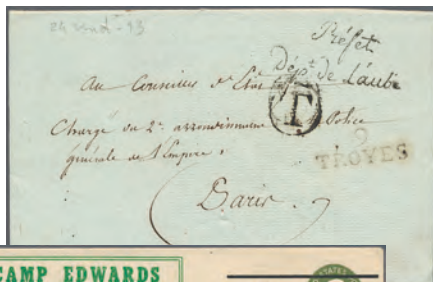 24 vend.re 13
Préfet
Dép.t de L'aube
Au Conseiller d'Etat
T
Chargé du 2e arrondissement Police
9
générale de l'Empire.
TROYES
Paris.
CAMP EDWARDS
STATES